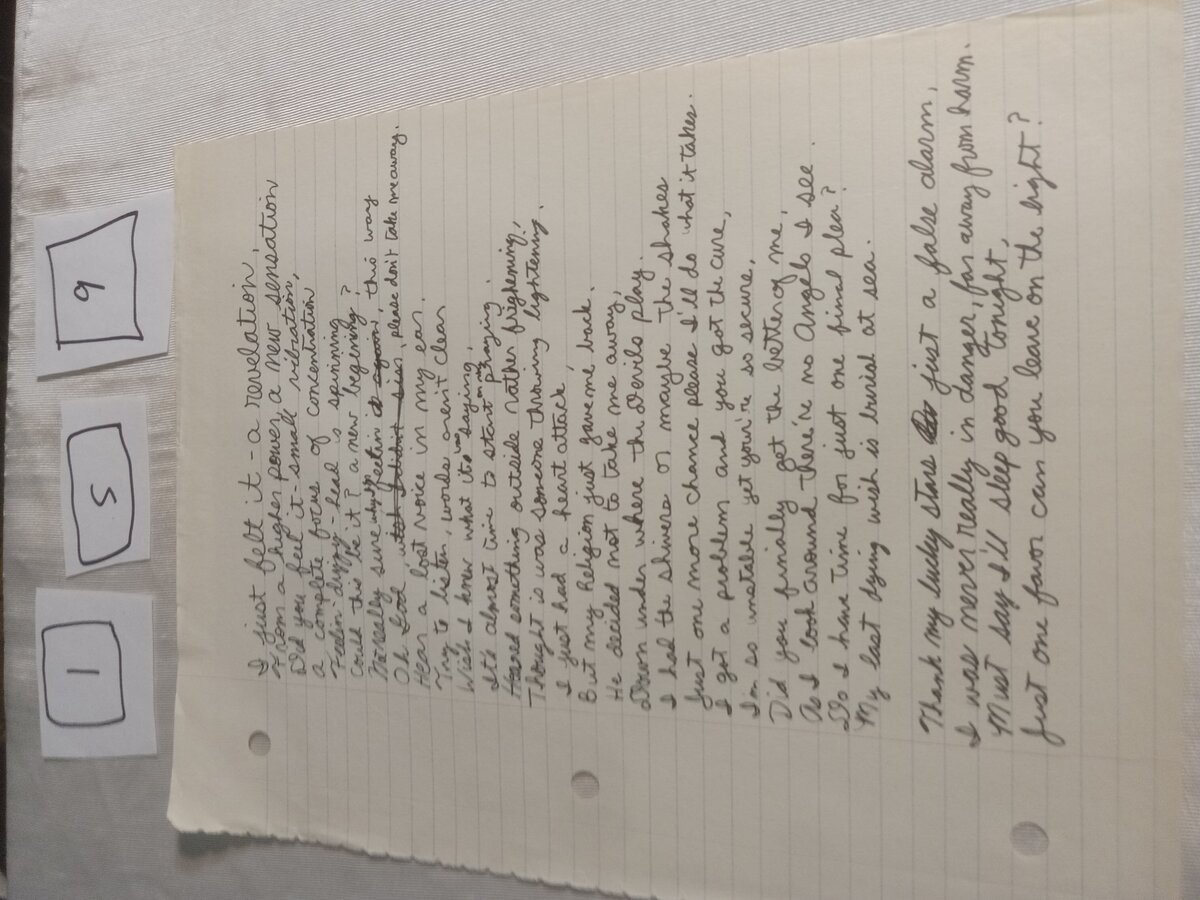 1
5
9
I just felt it - a revelation,
From a higher power a new sensation
Did you feel it - small vibration,
a complete focus of concentration
Feelin' dizzy - head is spinning
Could this be it? a new begening?
Not really sure why feelin this way
Oh God please don't take me away.
Hear a lost voice in my ear.
Try to listen, words aren't clear
Wish I knew what it was saying,
It's almost time to start my praying.
Heared something outside rather frightening,
Thought is was someone throwing lightening.
I just had a heart attack,
But my Religion just gave me back.
He decided not to take me away,
Down under where the Devils play.
I had the shivers or maybe the shakes
Just one more chance please I'll do what it takes.
I got a problem and you got the cure,
I'm so unstable yet your're so secure,
Did you finally get the better of me,
As I look around there're no Angels I see.
Do I have time for just one final plea?
My last dying wish is burial at sea.
Thank my lucky stars just a false alarm,
I was never really in danger, far away from harm.
Must say I'll sleep good tonight,
Just one favor can you leave on the light?